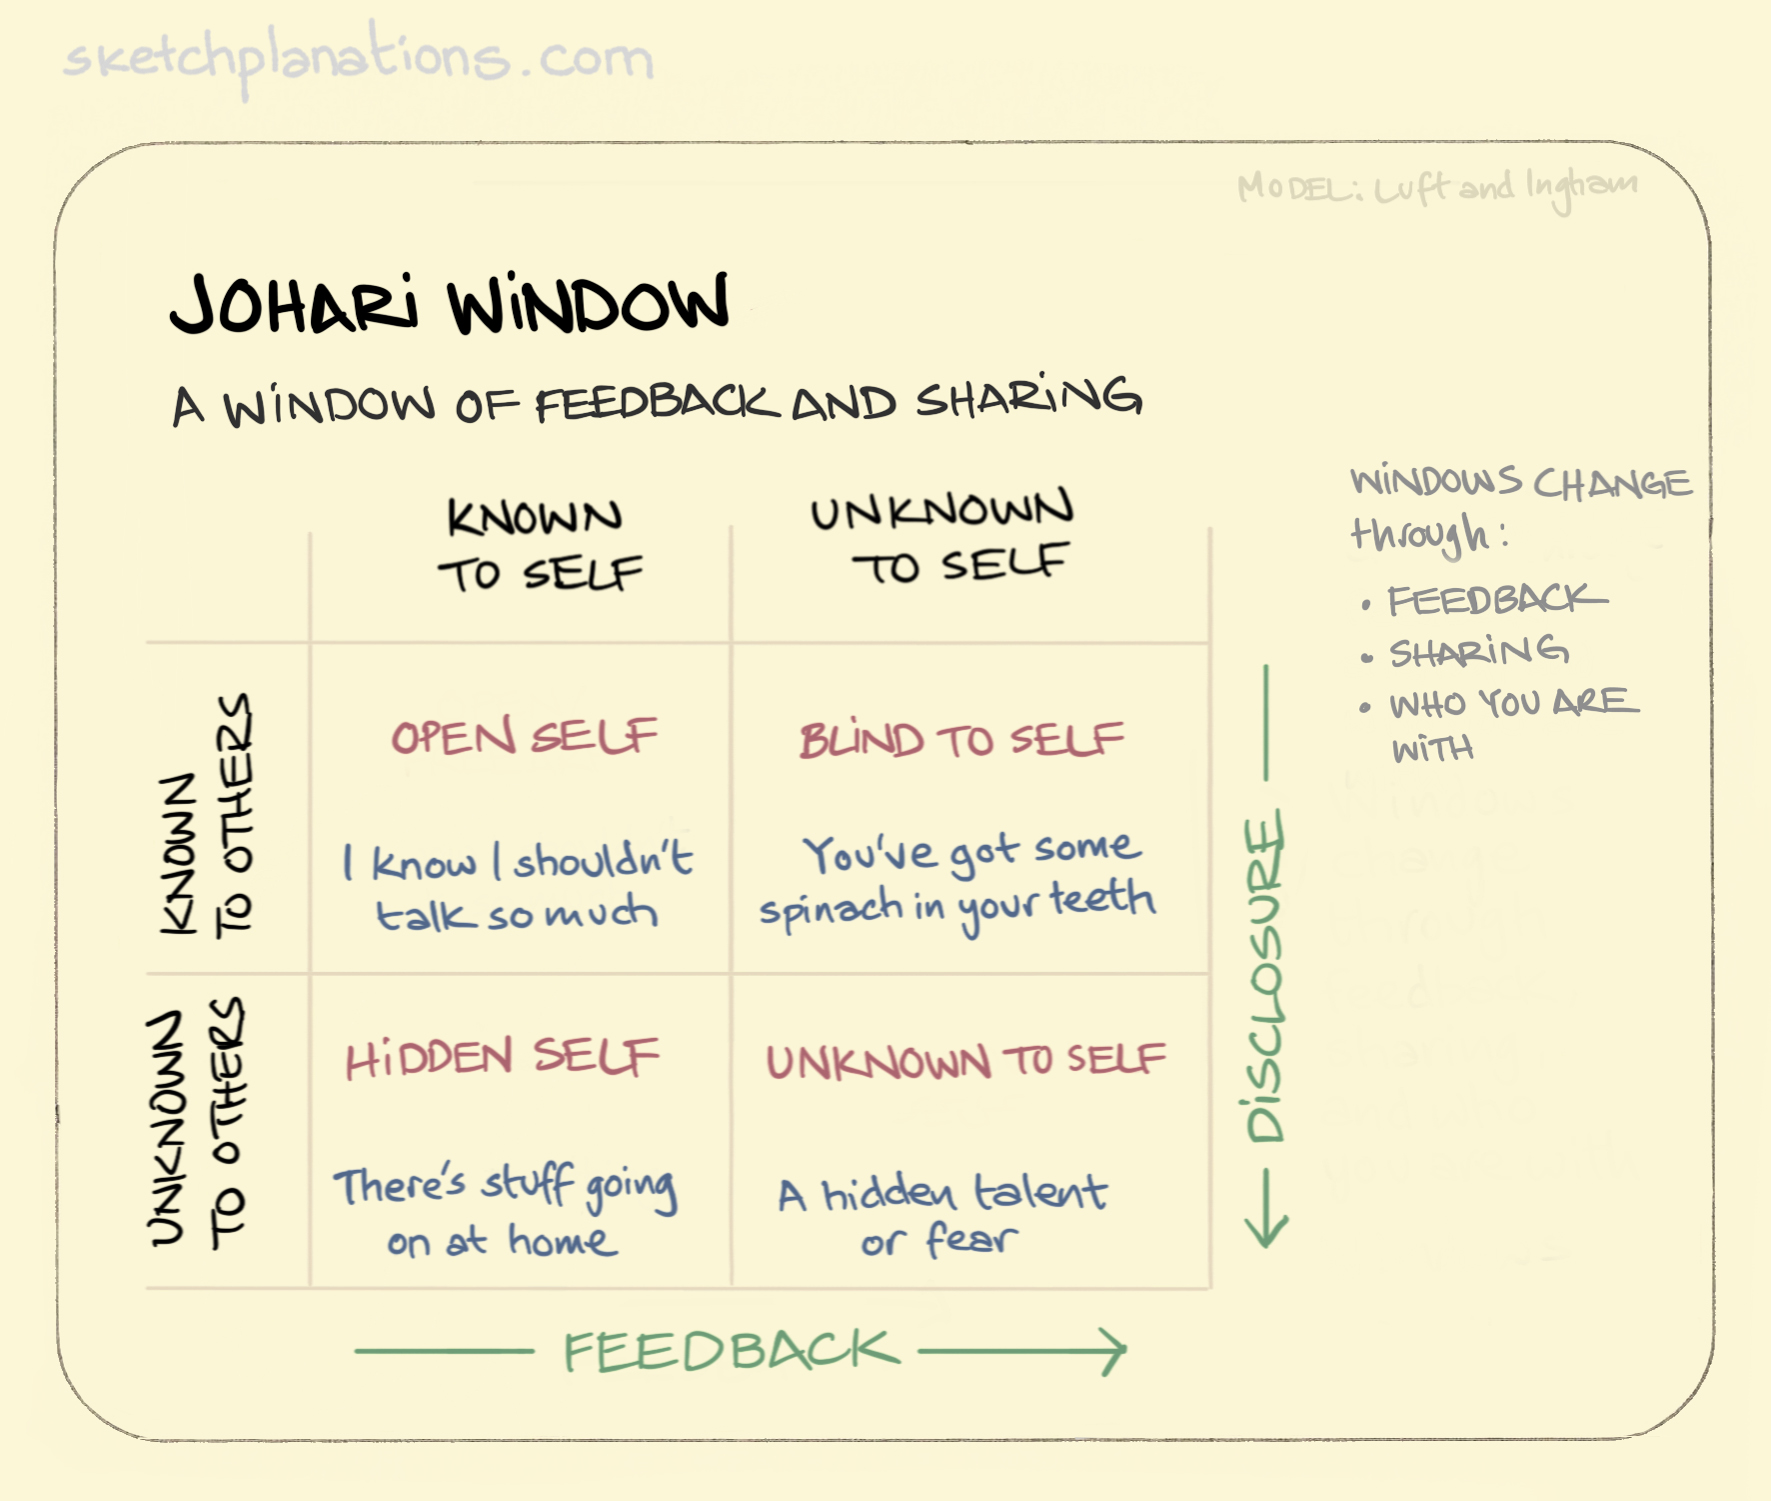 sketchplanations.com
MODEL: Luft and Ingham
JOHARi WiNDOW
A WiNDOW OF FEEDBACK AND SHARiNG
KNOWN
TO SELF
UNKNOWN
TO SELF
WiNDOWS CHANGE
through:
• FEEDBACK
• SHARiNG
• WHO YOU ARE
WiTH
KNOWN
TO OTHERS
OPEN SELF
I know I shouldn't
talk so much
BLiND TO SELF
You've got some
spinach in your teeth
UNKNOWN
TO OTHERS
HiDDEN SELF
There's stuff going
on at home
UNKNOWN TO SELF
A hidden talent
or fear
DiSCLOSURE
FEEDBACK